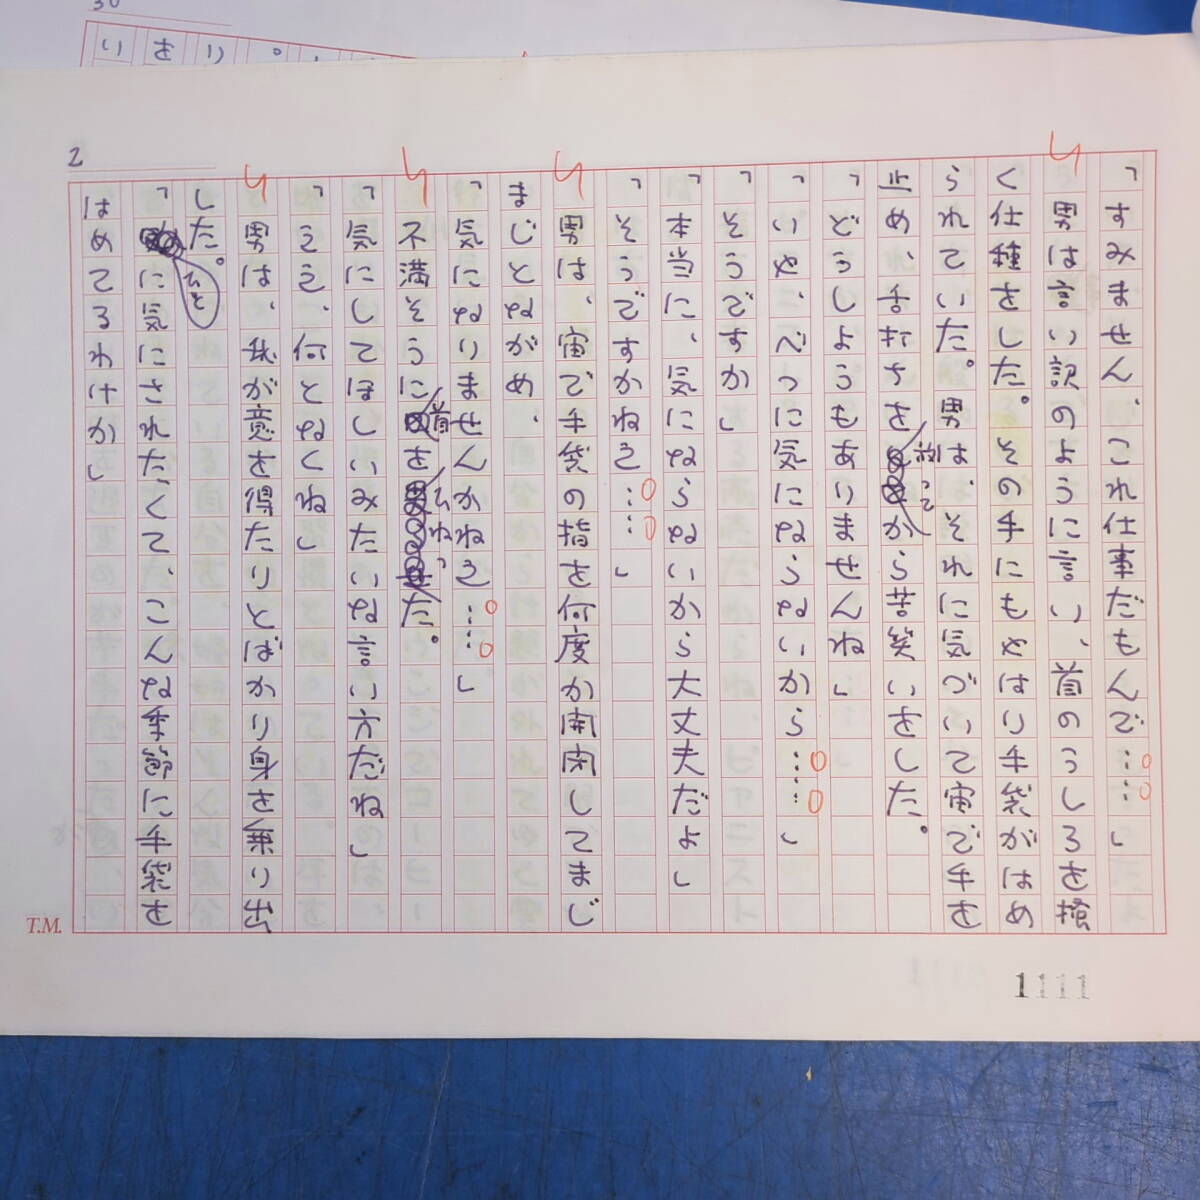 30
2
「すみません、これ仕事だもんで……」
男は言い訳のように言い、首のうしろを掻
く仕種をした。その手にもやはり手袋がはめ
られていた。男は、それに気づいて宙で手を
止め、舌打ちを放ってから苦笑いをした。
「どうしようもありませんね」
「いや、べつに気にならないから……」
「そうですか」
「本当に、気にならないから大丈夫だよ」
「そうですかねえ……」
男は、宙で手袋の指を何度か開閉してまじ
まじとながめ、
「気になりませんかねえ……」
不満そうに首をひねった。
「気にしてほしいみたいな言い方だね」
「ええ、何となくね」
男は、我が意を得たりとばかり身を乗り出
した。
「ひとに気にされたくて、こんな季節に手袋を
はめてるわけか」
T.M.
1111